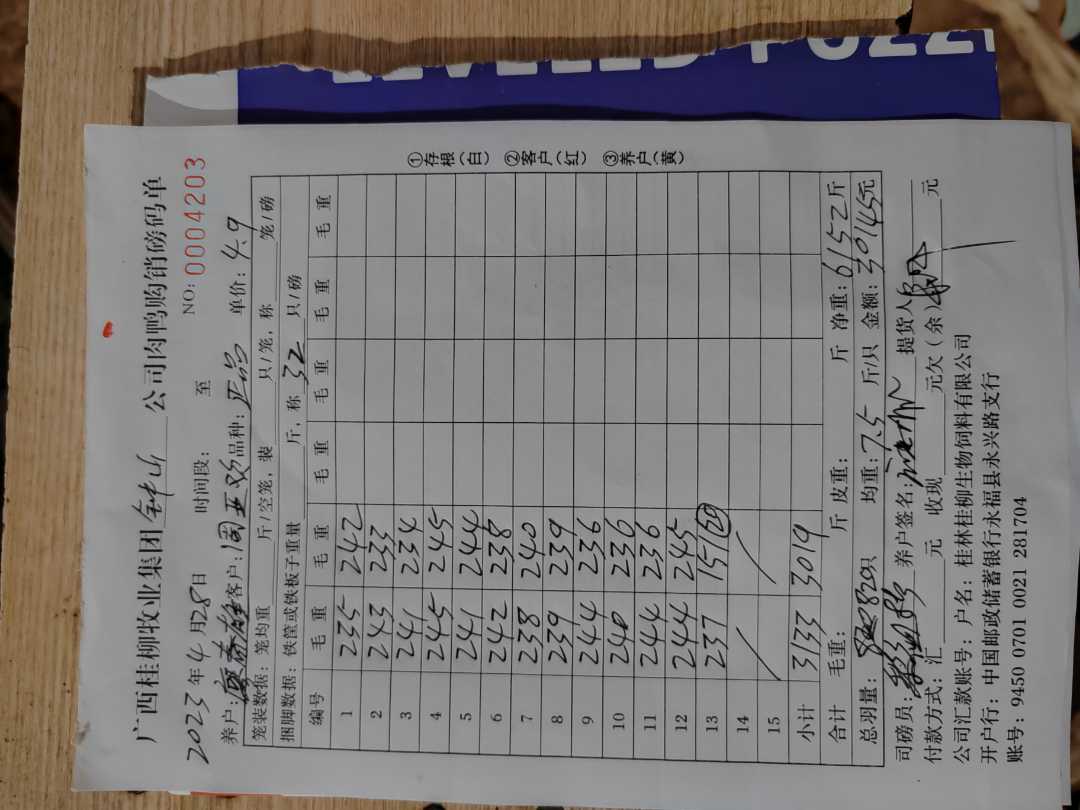 LEVELED PUZZ
广西桂柳牧业集团 钟山 公司肉鸭购销磅码单
NO: 0004203
2023年4月28日 时间段: 至
养户: 客户: 周亚欢 品种: 正品 单价: 4.9
笼装数据: 笼均重 斤/空笼, 装 只/笼, 称 笼/磅
捆脚数据: 铁筐或铁板子重量 斤, 称 32 只/磅
编号 毛重 毛重 毛重 毛重 毛重 毛重
1 235 242
2 243 233
3 241 234
4 245 245
5 241 244
6 242 238
7 238 240
8 239 239
9 244 236
10 240 236
11 244 236
12 244 245
13 237 151 20
14 / /
15
小计 3133 3019
合计 毛重: 斤 皮重: 斤 净重: 6152斤
总羽量: 820只 均重: 7.5 斤/只 金额: 30145元
司磅员 养户签名: 提货人
付款方式: 汇 元 收现 元欠(余) 元
公司汇款账号: 户名: 桂林桂柳生物饲料有限公司
开户行: 中国邮政储蓄银行永福县永兴路支行
账号: 9450 0701 0021 281704
①存根(白) ②客户(红) ③养户(黄)